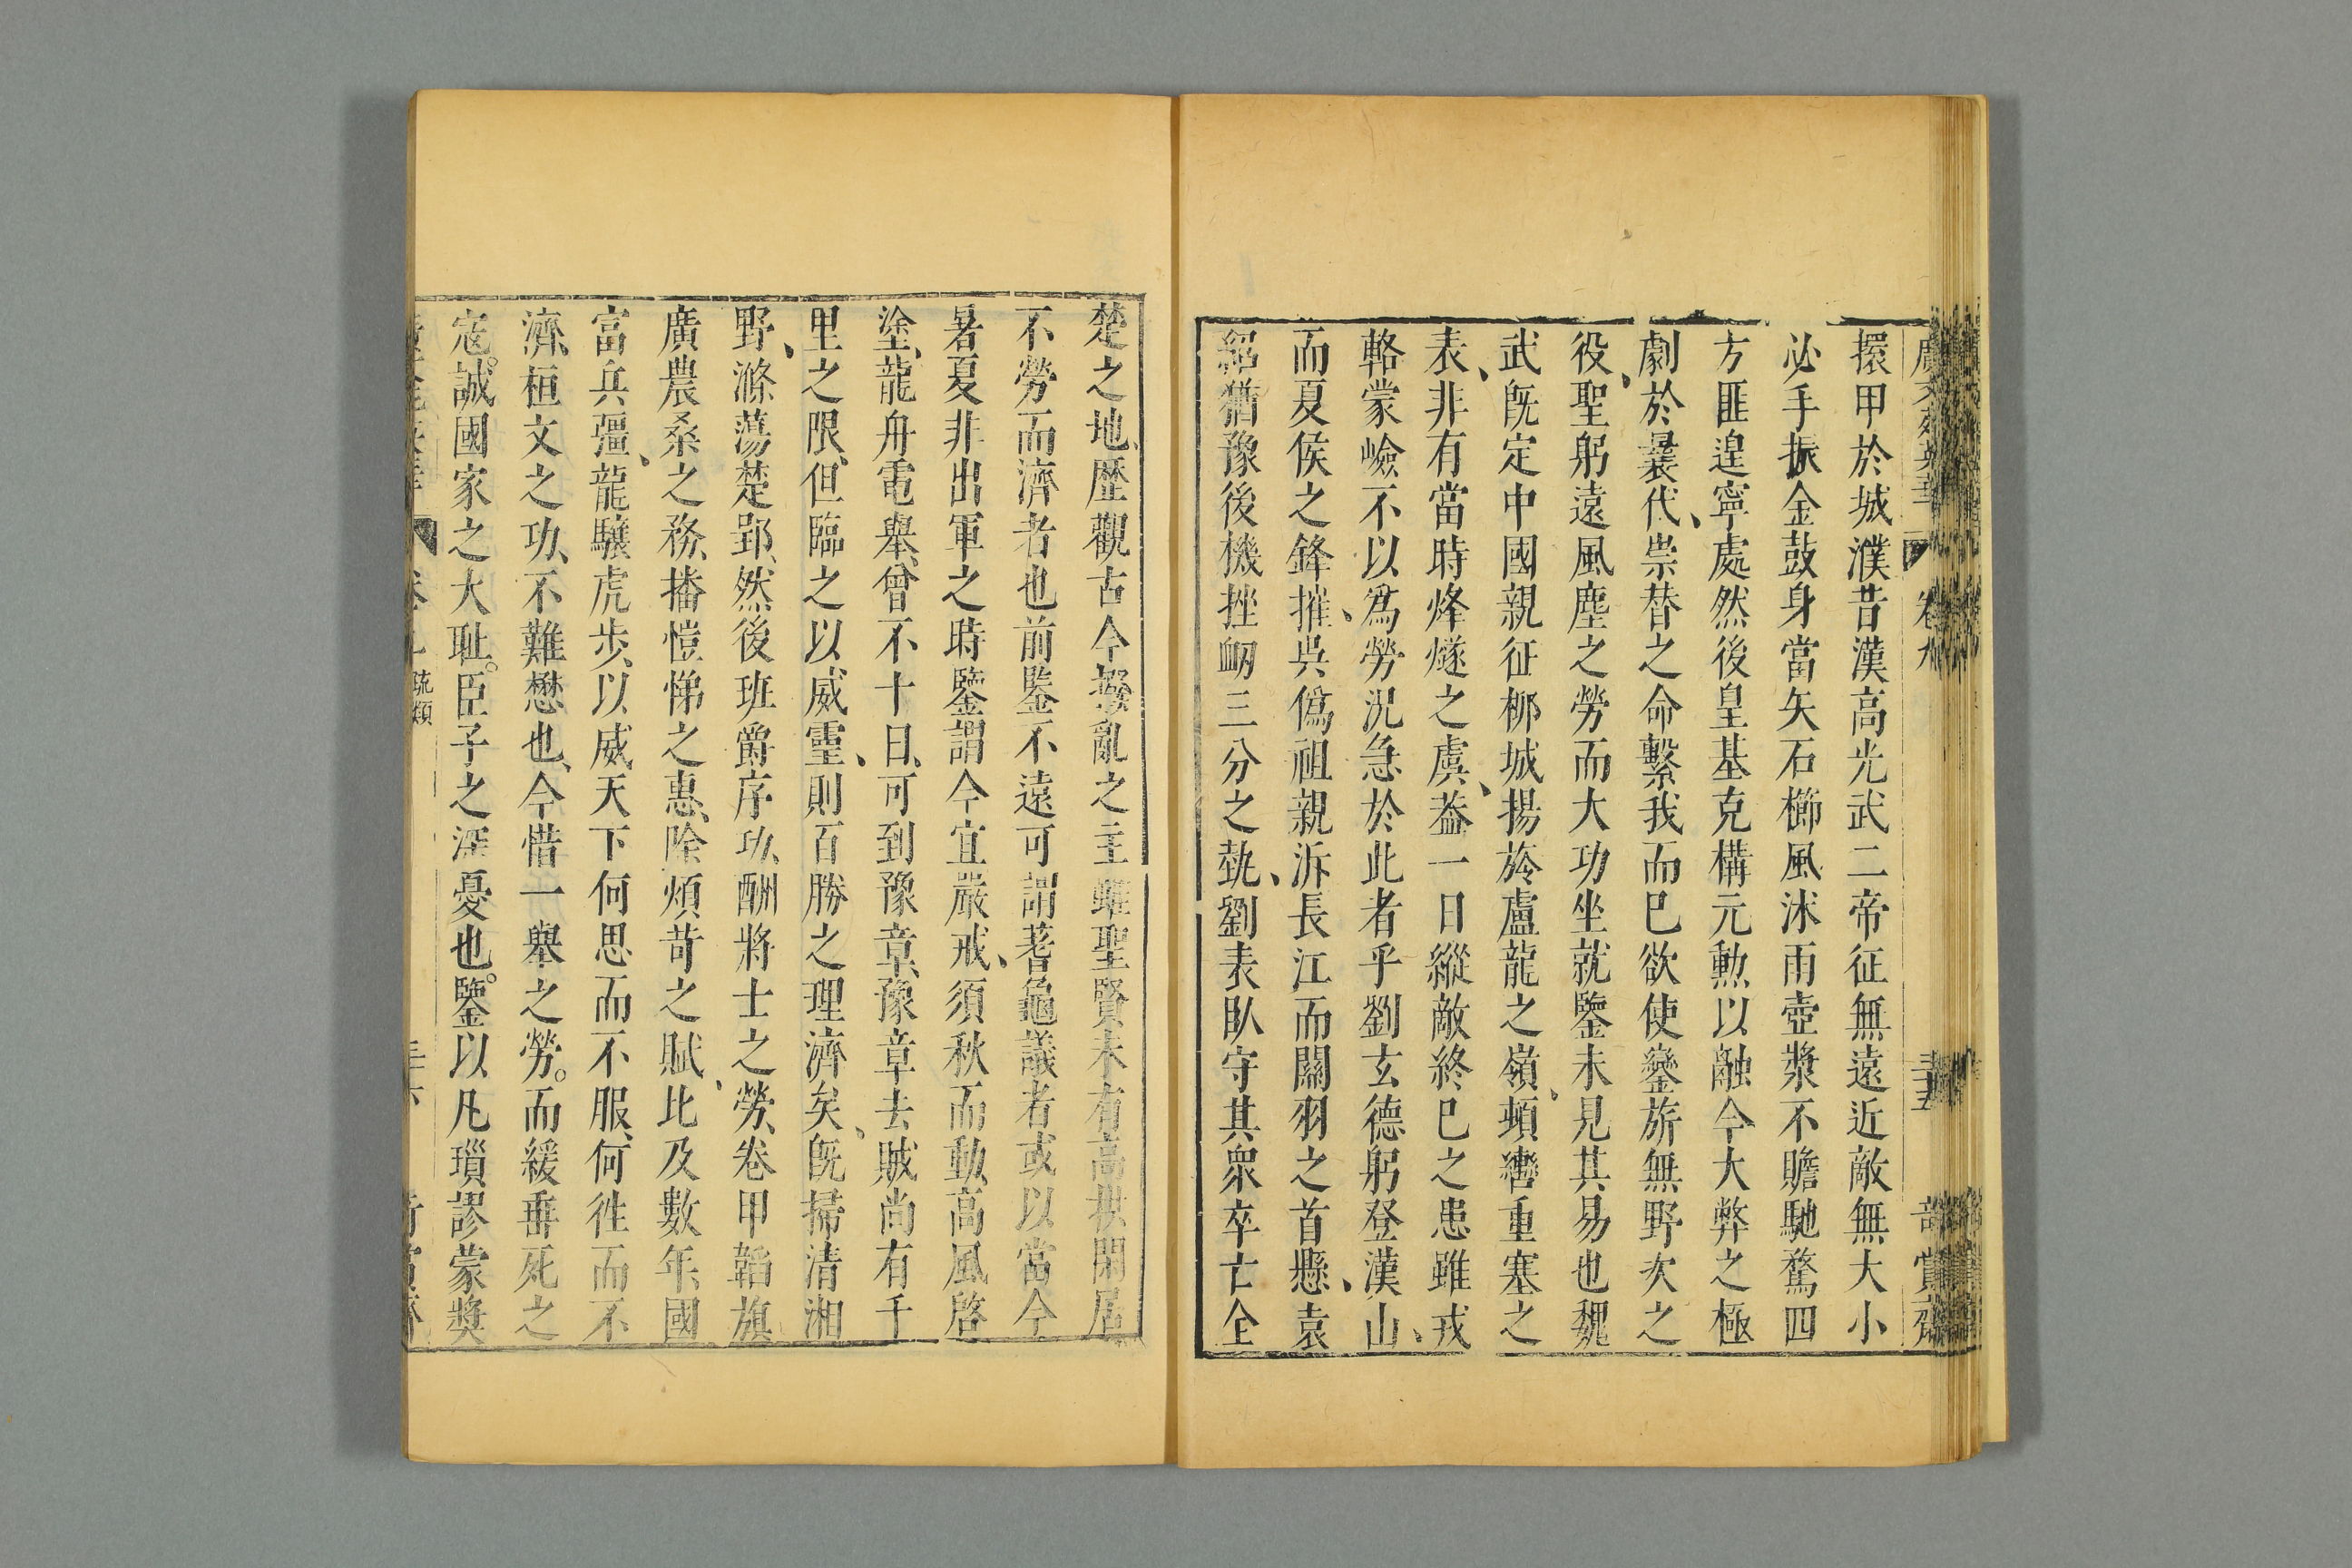 廣文苑英華 卷九 三十五 奇賞齋
擐甲於城濮昔漢高光武二帝征無遠近敵無大小
必手振金鼓身當矢石櫛風沐雨壺漿不贍馳騖四
方匪遑寧處然後皇基克構元勲以融今大弊之極
劇於曩代、祟替之命繫我而巳欲使鑾旂無野次之
役、聖躬遠風塵之勞而大功坐就鑒未見其易也魏
武旣定中國親征栁城揚旍盧龍之嶺、頓轡重塞之
表、非有當時烽燧之虞、葢一日縱敵終巳之患雖戎
輅蒙嶮不以爲勞況急於此者乎劉玄德躬登漢山、
而夏侯之鋒摧、吳僞祖親泝長江而關羽之首懸、袁
紹猶豫後機挫衂三分之埶、劉表臥守其衆卒亡全
楚之地、歷觀古今撥亂之主雖聖賢未有高拱閑居
不勞而濟者也前鑒不遠可謂蓍龜議者或以當今
暑夏非出軍之時鑒謂今宜嚴戒、須秋而動、高風啓
塗、龍舟電舉、曾不十日、可到豫章、豫章去賊尚有千
里之限、但臨之以威靈、則百勝之理濟矣、旣掃清湘
野、滌蕩楚郢、然後班爵序功、酬將士之勞、卷甲韜旗
廣農桑之務、播愷悌之惠、除煩苛之賦、比及數年、國
富兵彊、龍驤虎步、以威天下何思而不服、何徃而不
濟、桓文之功、不難懋也、今惜一舉之勞。而緩垂死之
寇。誠國家之大耻。臣子之深憂也。鑒以凡瑣謬蒙奬
疏類 三十六 奇賞齋